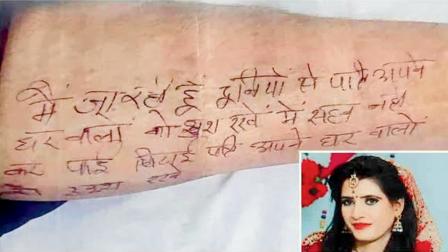 मैं जा रही हूँ दुनियाँ से पति अपने
घर वालो को खुश रखे में सहन नही
कर पाई पति अपने घर वालों